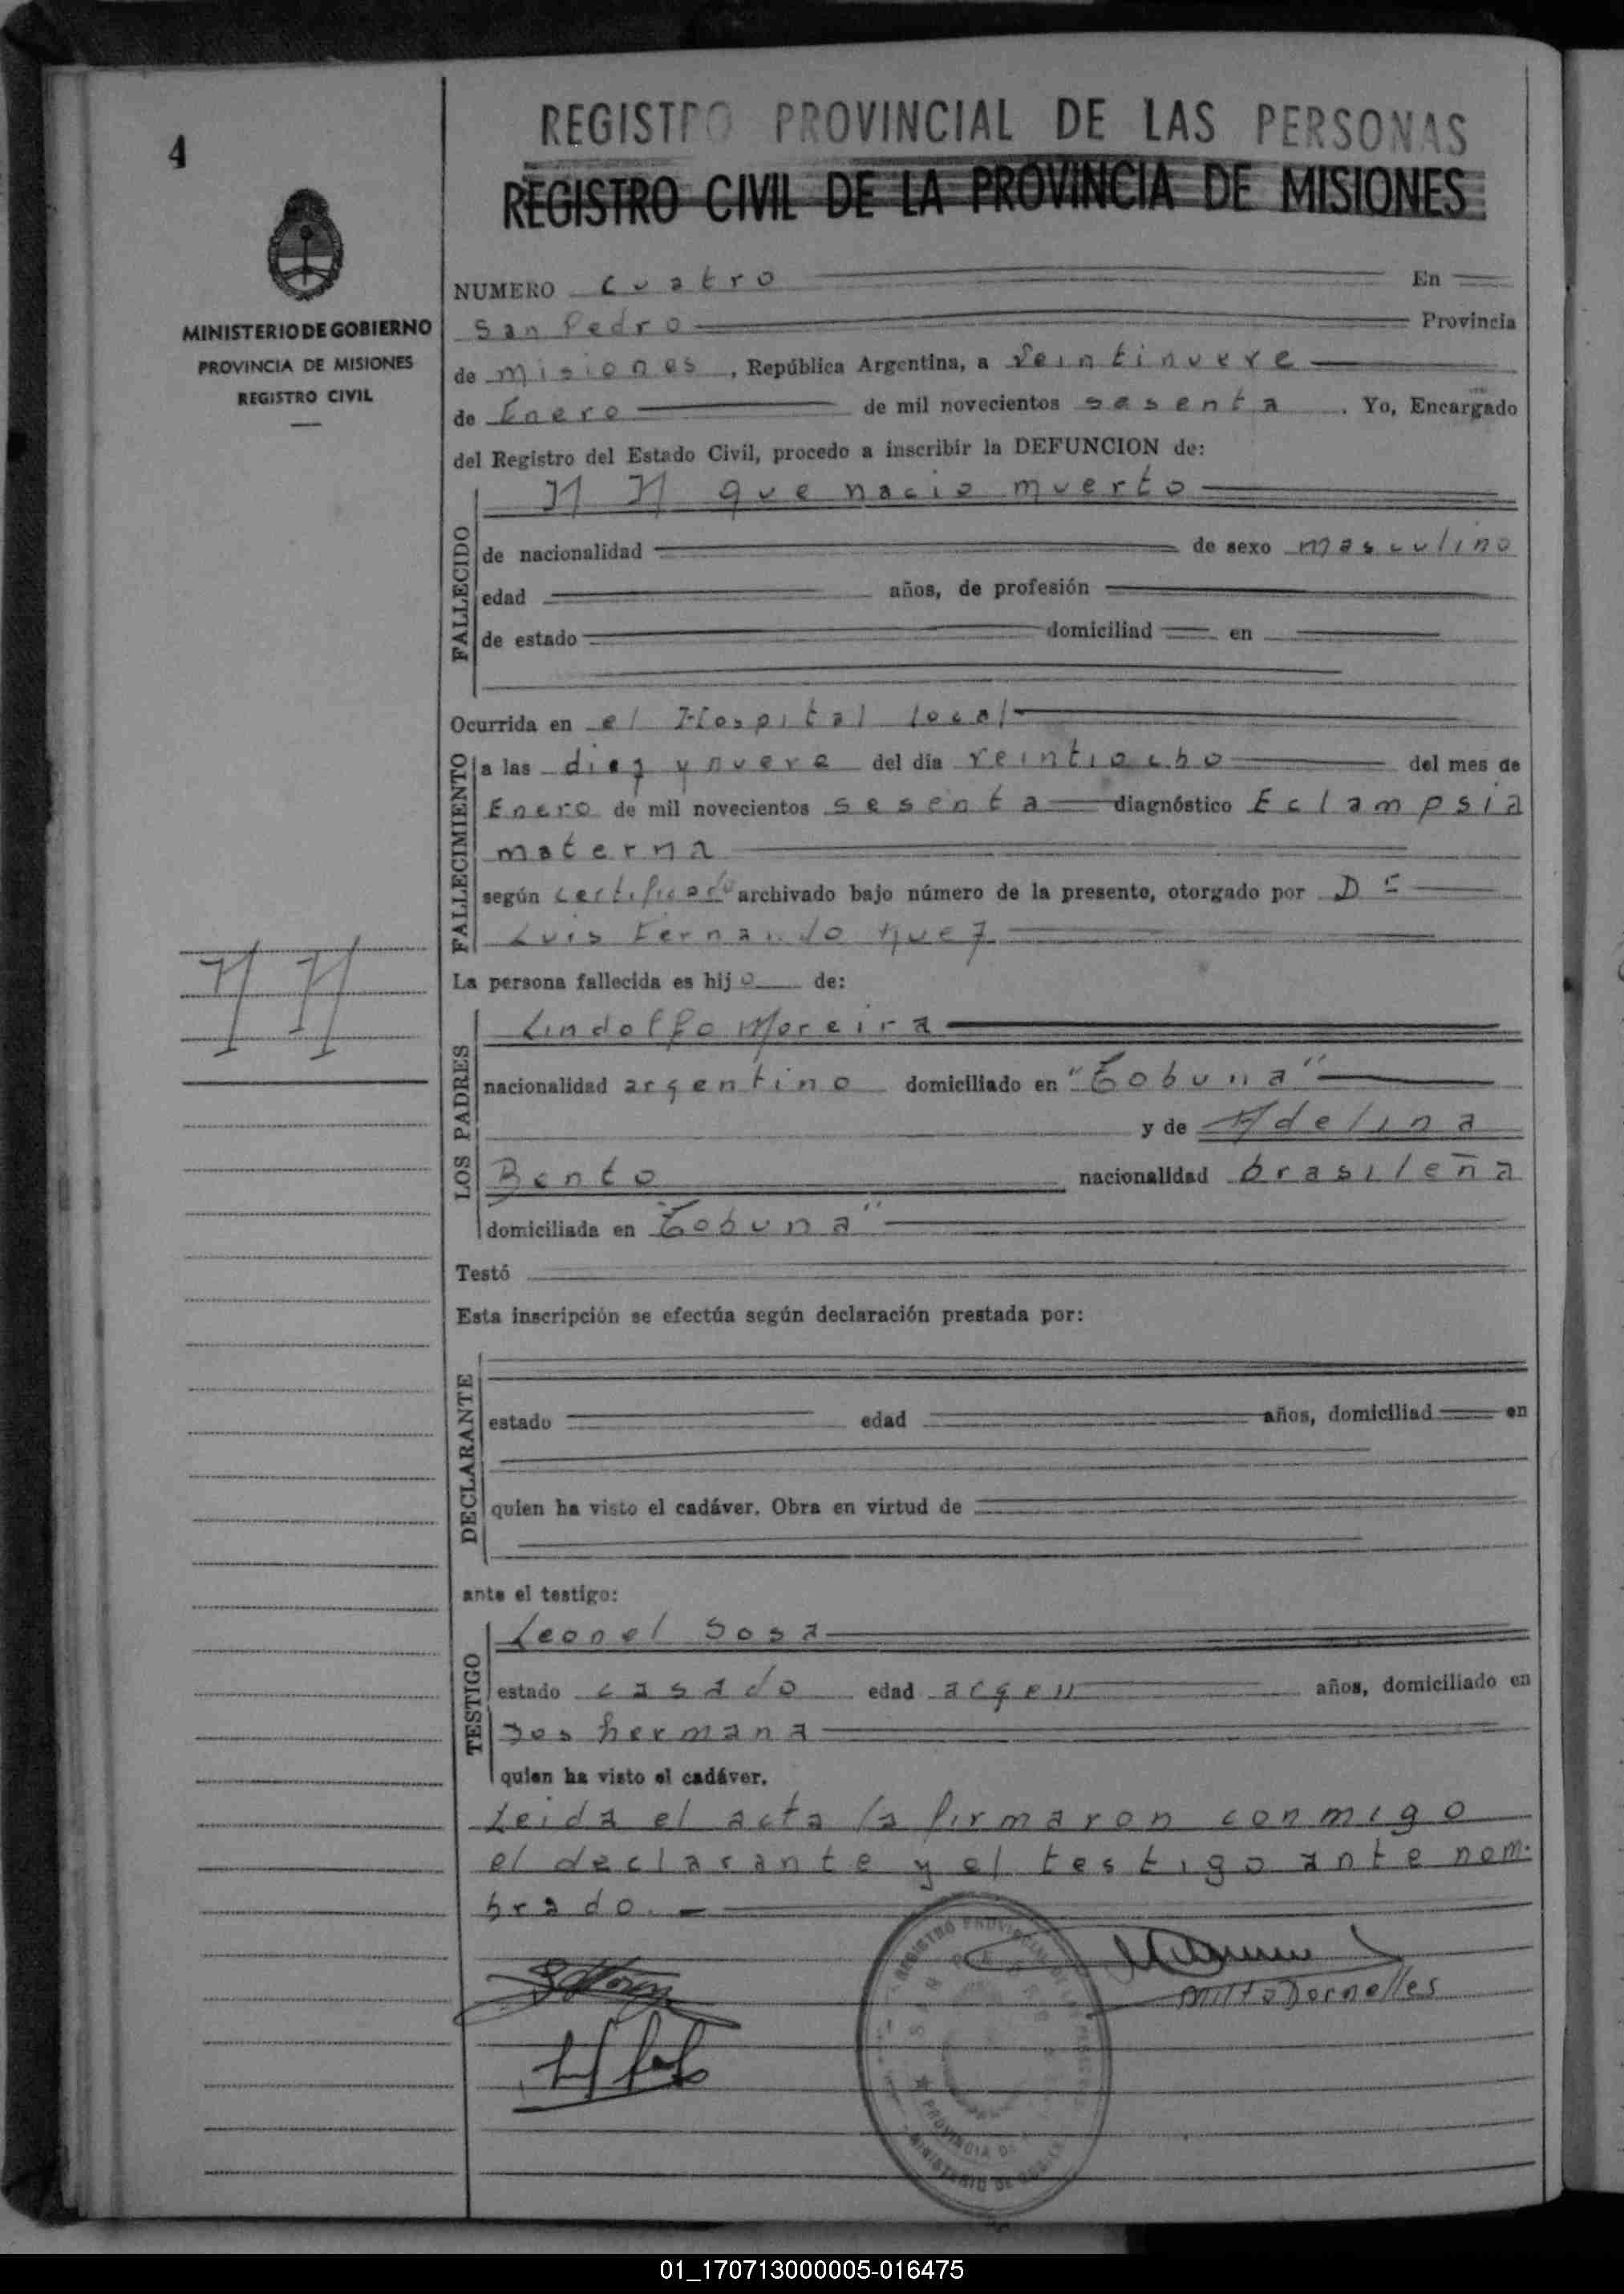 4
REGISTRO PROVINCIAL DE LAS PERSONAS
REGISTRO CIVIL DE LA PROVINCIA DE MISIONES
MINISTERIO DE GOBIERNO
PROVINCIA DE MISIONES
REGISTRO CIVIL
NUMERO cuatro En
San Pedro Provincia
de misiones, República Argentina, a Veintinueve
de Enero de mil novecientos sesenta. Yo, Encargado
del Registro del Estado Civil, procedo a inscribir la DEFUNCION de:
FALLECIDO
N N que nacio muerto
de nacionalidad de sexo masculino
edad años, de profesión
de estado domiciliad en
Ocurrida en el Hospital local
FALLECIMIENTO
a las diez y nueve del día veintiocho del mes de
Enero de mil novecientos sesenta diagnóstico Eclampsia
materna
según certificado archivado bajo número de la presente, otorgado por Dr
Luis Fernando
N N
La persona fallecida es hijo de:
LOS PADRES
Lindolfo Moreira
nacionalidad argentino domiciliado en "Tobuna"
y de Adelina
Bento nacionalidad brasileña
domiciliada en "Tobuna"
Testó
Esta inscripción se efectúa según declaración prestada por:
DECLARANTE
estado edad años, domiciliad en
quien ha visto el cadáver. Obra en virtud de
ante el testigo:
TESTIGO
Leonel Sosa
estado casado edad argen años, domiciliado en
Dos hermana
quien ha visto el cadáver.
Leida el acta la firmaron conmigo
el declarante y el testigo ante nom-
brado.-
Dornelles
REGISTRO PROVINCIAL DE LAS PERSONAS
SAN PEDRO
PROVINCIA DE
MINISTERIO DE GOBIERNO
01_170713000005-016475